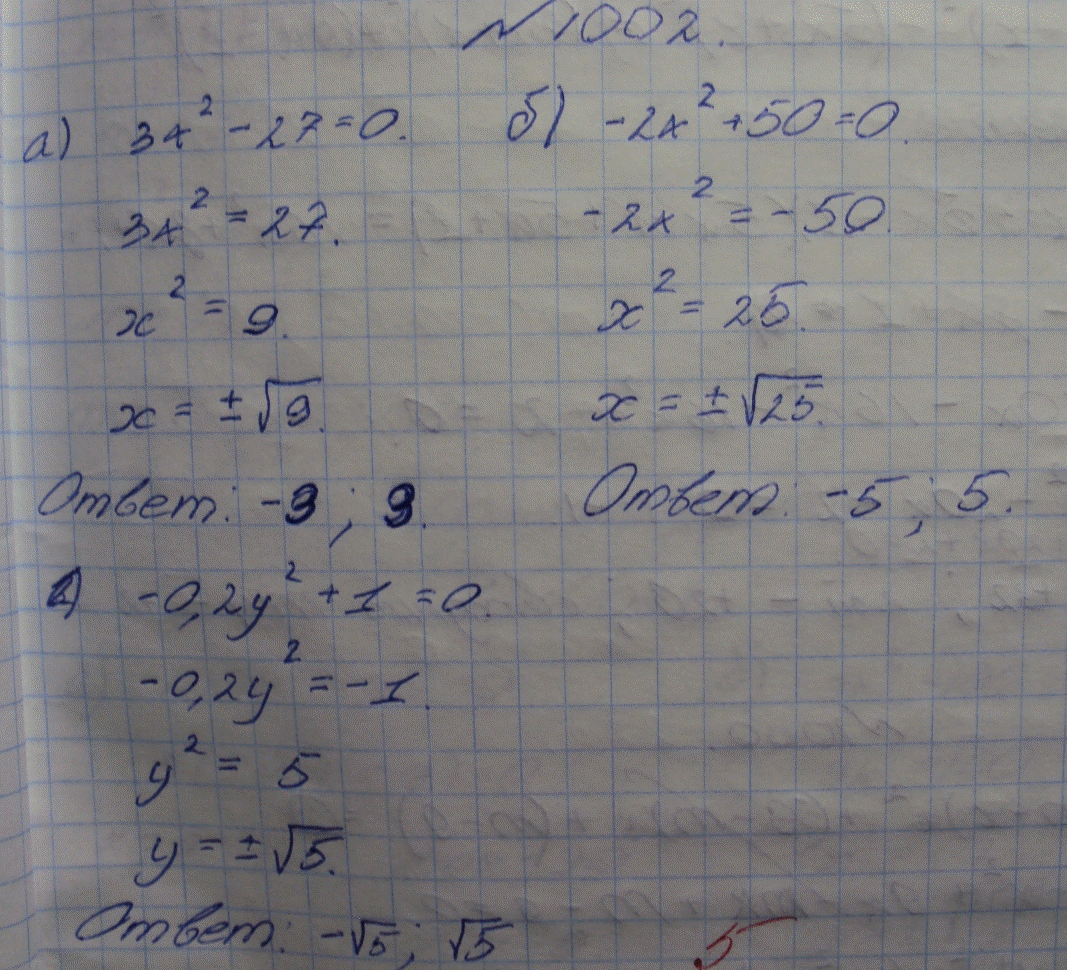 №1002.
а) 3x² - 27 = 0.
3x² = 27.
x² = 9.
x = ±√9.
Ответ: -3 ; 3.
б) -2x² + 50 = 0.
-2x² = -50.
x² = 25.
x = ±√25.
Ответ: -5 ; 5.
-0,2y² + 1 = 0.
-0,2y² = -1.
y² = 5
y = ±√5.
Ответ: -√5 ; √5
5